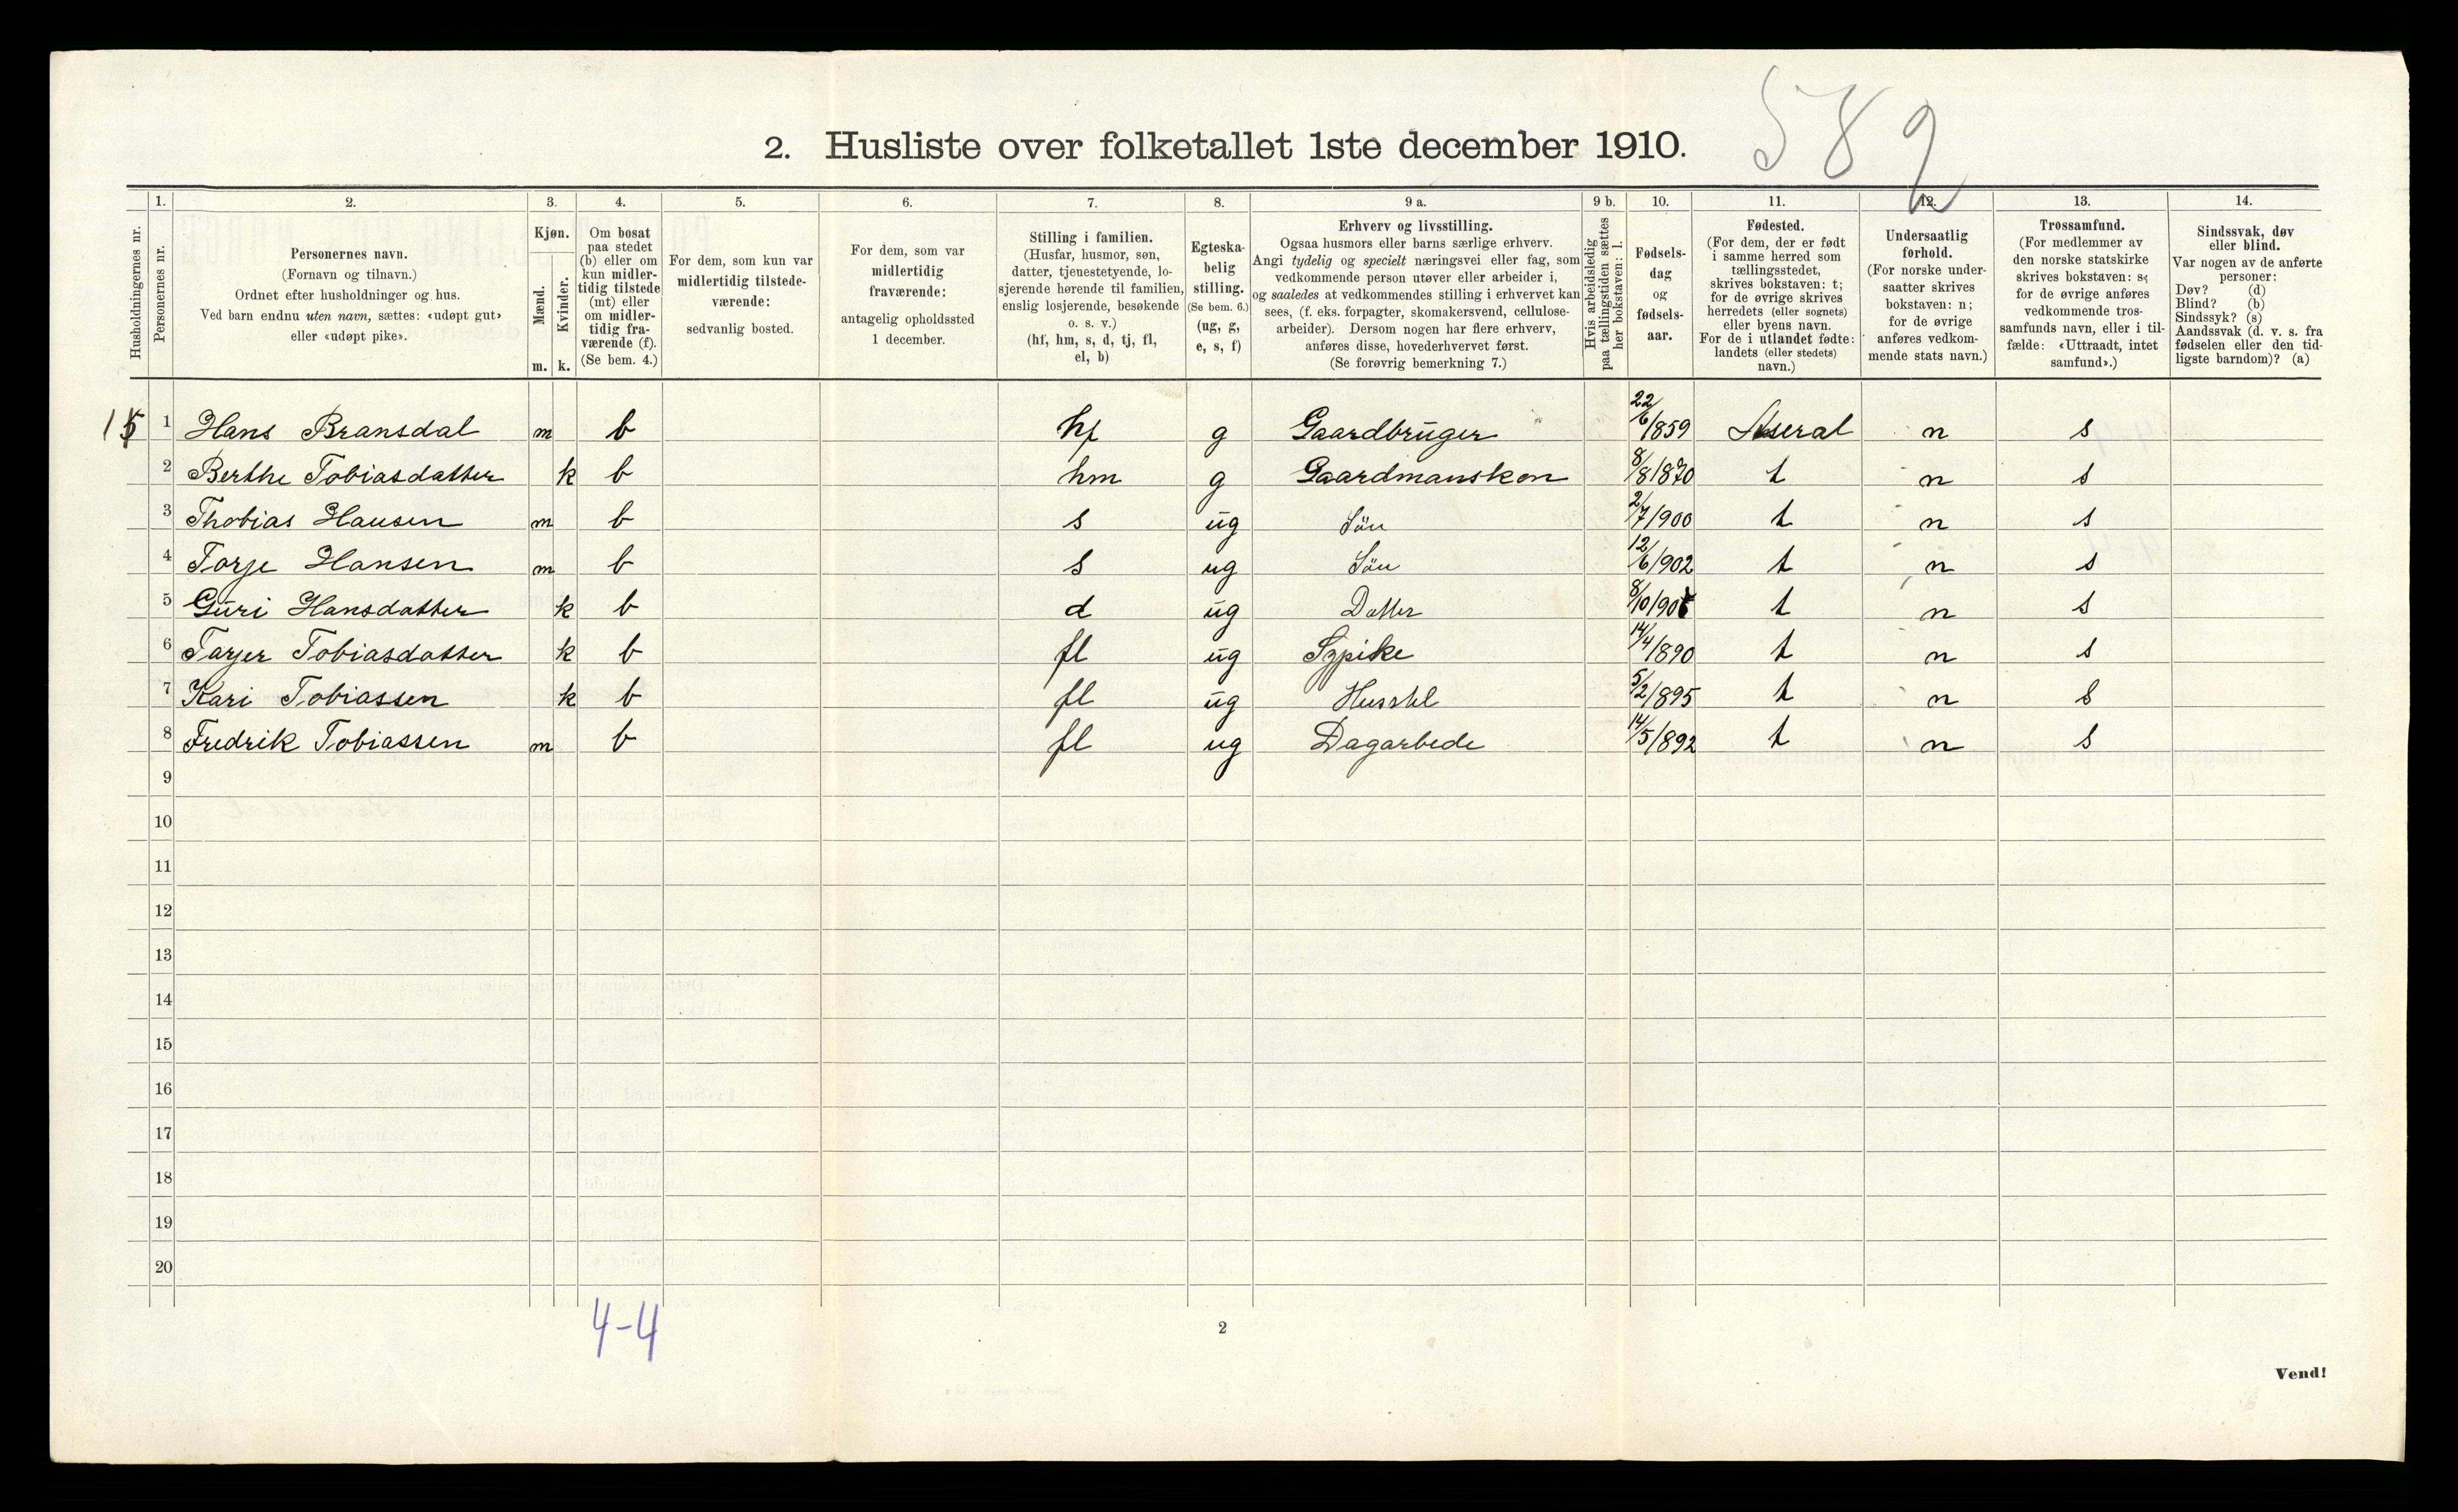 589
2. Husliste over folketallet 1ste december 1910.
Husholdningernes nr.
1. Personernes nr.
2. Personernes navn. (Fornavn og tilnavn.) Ordnet efter husholdninger og hus. Ved barn endnu uten navn, sættes: «udøpt gut» eller «udøpt pike».
3. Kjøn. Mænd. m. Kvinder. k.
4. Om bosat paa stedet (b) eller om kun midlertidig tilstede (mt) eller om midlertidig fraværende (f). (Se bem. 4.)
5. For dem, som kun var midlertidig tilstedeværende: sedvanlig bosted.
6. For dem, som var midlertidig fraværende: antagelig opholdssted 1 december.
7. Stilling i familien. (Husfar, husmor, søn, datter, tjenestetyende, losjerende hørende til familien, enslig losjerende, besøkende o. s. v.) (hf, hm, s, d, tj, fl, el, b)
8. Egteskabelig stilling. (Se bem. 6.) (ug, g, e, s, f)
9 a. Erhverv og livsstilling. Ogsaa husmors eller barns særlige erhverv. Angi tydelig og specielt næringsvei eller fag, som vedkommende person utøver eller arbeider i, og saaledes at vedkommendes stilling i erhvervet kan sees, (f. eks. forpagter, skomakersvend, cellulosearbeider). Dersom nogen har flere erhverv, anføres disse, hovederhvervet først. (Se forøvrig bemerkning 7.)
9 b. Hvis arbeidsledig paa tællingstiden sættes her bokstaven: l.
10. Fødselsdag og fødselsaar.
11. Fødested. (For dem, der er født i samme herred som tællingsstedet, skrives bokstaven: t; for de øvrige skrives herredets (eller sognets) eller byens navn. For de i utlandet fødte: landets (eller stedets) navn.)
12. Undersaatlig forhold. (For norske undersaatter skrives bokstaven: n; for de øvrige anføres vedkommende stats navn.)
13. Trossamfund. (For medlemmer av den norske statskirke skrives bokstaven: s; for de øvrige anføres vedkommende trossamfunds navn, eller i tilfælde: «Uttraadt, intet samfund».)
14. Sindssvak, døv eller blind. Var nogen av de anførte personer: Døv? (d) Blind? (b) Sindssyk? (s) Aandssvak (d. v. s. fra fødselen eller den tidligste barndom)? (a)
1 Hans Bransdal m b hf g Gaardbruger 22/6/859 Aseral n s
2 Berthe Tobiasdatter k b hm g Gaardmanskon 8/8/870 t n s
3 Thobias Hansen m b s ug Sön 2/7/900 t n s
4 Torje Hansen m b s ug Sön 12/6/902 t n s
5 Guri Hansdatter k b d ug Datter 8/10/90 t n s
6 Tarjer Tobiasdatter k b fl ug Sypike 14/4/890 t n s
7 Kari Tobiassen k b fl ug Husstel 5/2/895 t n s
8 Fredrik Tobiassen m b fl ug Dagarbede 14/5/892 t n s
9
10
11
12
13
14
15
16
17
18
19
20
4-4
2
Vend!